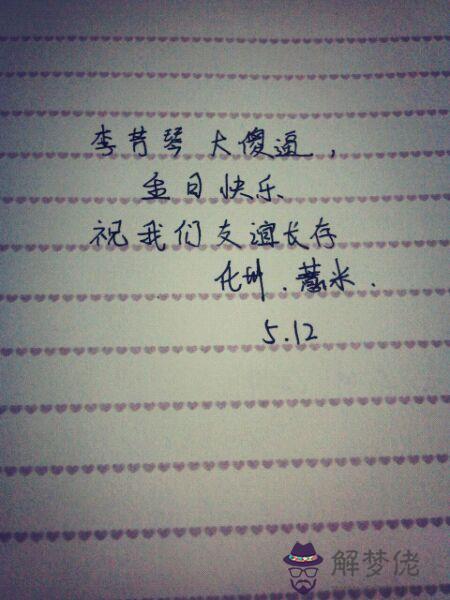 李芳琴大傻逼,
生日快乐
祝我们友谊长存
化州.薏米.
5.12
解梦佬